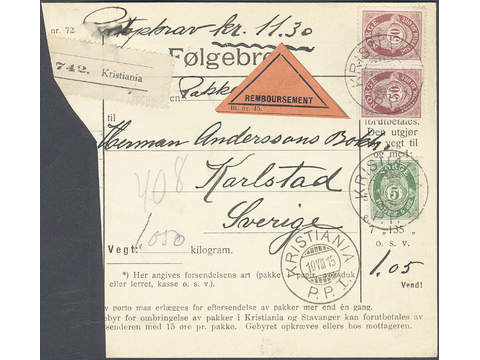 nr. 72 Postopkrav kr. 11.30
Følgebre
742. Kristiania
Pakke
REMBOURSEMENT
Bl. nr. 45.
til
Herman Anderssons Bokh.
forutbetales.
Den utgjør
vegt til
og med:
408
Karlstad
Sverige
NORGE
50
NORGE
50
KRISTIANIA
5
1 135
1,050
Vegt: kilogram.
o. s. v.
1.05
KRISTIANIA
10 VIII 15
P.P.T.
Vend!
*) Her angives forsendelsens art (pakke papir, produk
eller lerret, kasse o. s. v.).
porto maa erlægges for eftersendelse av pakker mer end én gang.
ebyr for ombringelse av pakker i Kristiania og Stavanger kan forutbetales av
senderen med 15 øre pr. pakke. Gebyret opkræves ellers hos mottageren.